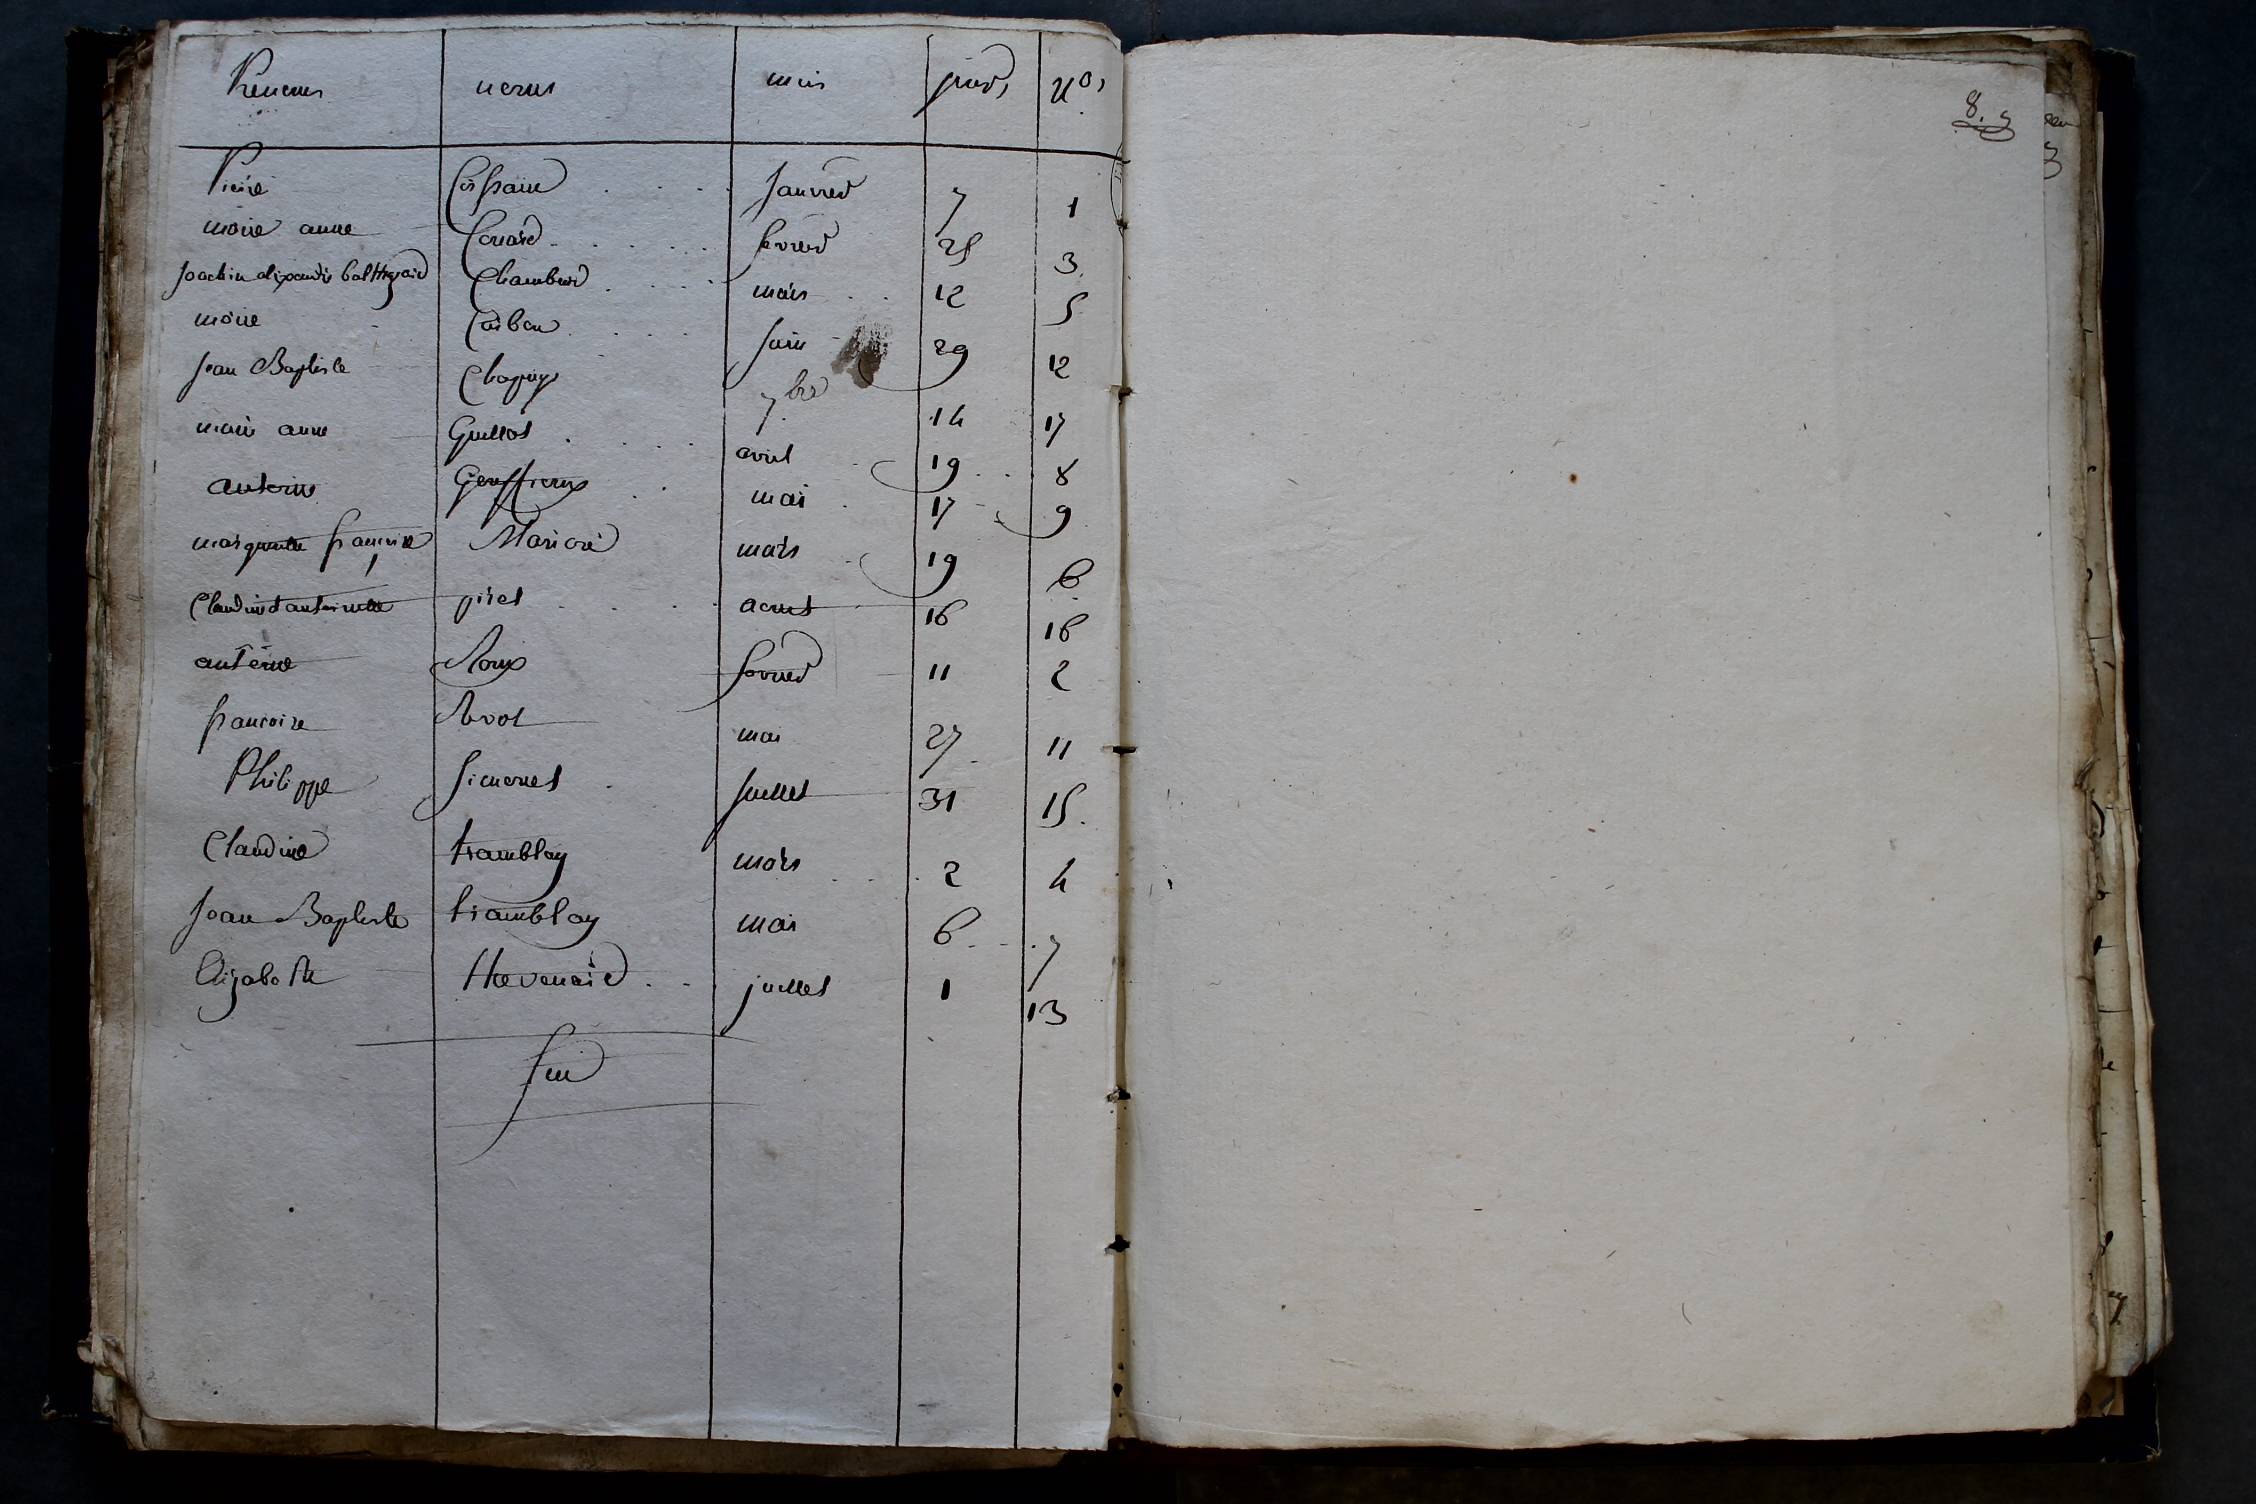 Prenoms noms mois jours Nos
Pierre janvier 7 1
marie anne Conard fevrier 25 3
Joachin alixandre balthazard Chambard mars 12 5
marie Corbon juin 29 12
jean Baptiste Chapuys 7bre 14 17
marie anne Guillot avril 19 8
antoine Geoffroux mai 17 9
marguerite francoise mars 19 6
Claudine antoinette piret aout 16 16
antoine Roux fevrier 11 2
francoise Revol mai 27 11
Philippe Simonet juillet 31 15
Claudine tramblay mars 2 4
Jean Baptiste tramblay mai 6 7
Elizabeth thevenard juillet 1 13
fin
8.